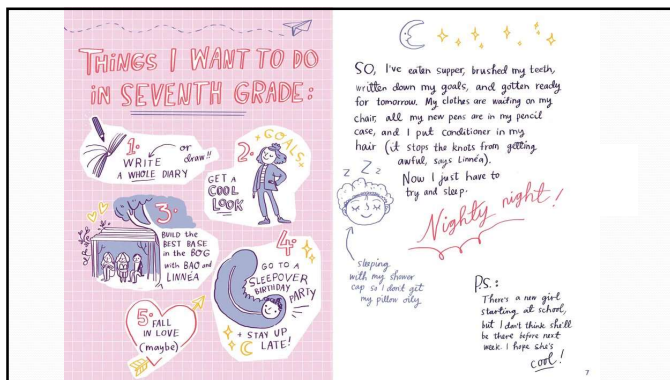 THINGS I WANT TO DO
IN SEVENTH GRADE:
1.
WRITE
A WHOLE DIARY
or
draw!!
2.
GOALS
GET A
COOL
LOOK
3.
BUILD THE
BEST BASE
IN THE BOG
with BAO and
LINNÉA
4.
GO TO A
SLEEPOVER
BIRTHDAY
PARTY
+ STAY UP
LATE!
5. FALL
IN LOVE
(maybe)
SO, I've eaten supper, brushed my teeth,
written down my goals, and gotten ready
for tomorrow. My clothes are waiting on my
chair, all my new pens are in my pencil
case, and I put conditioner in my
hair (it stops the knots from getting
awful, says Linnéa).
Now I just have to
try and sleep.
Z Z Z
Nighty night!
sleeping
with my shower
cap so I don't get
my pillow oily
P.S.:
There's a new girl
starting at school,
but I don't think she'll
be there before next
week. I hope she's
cool!
7